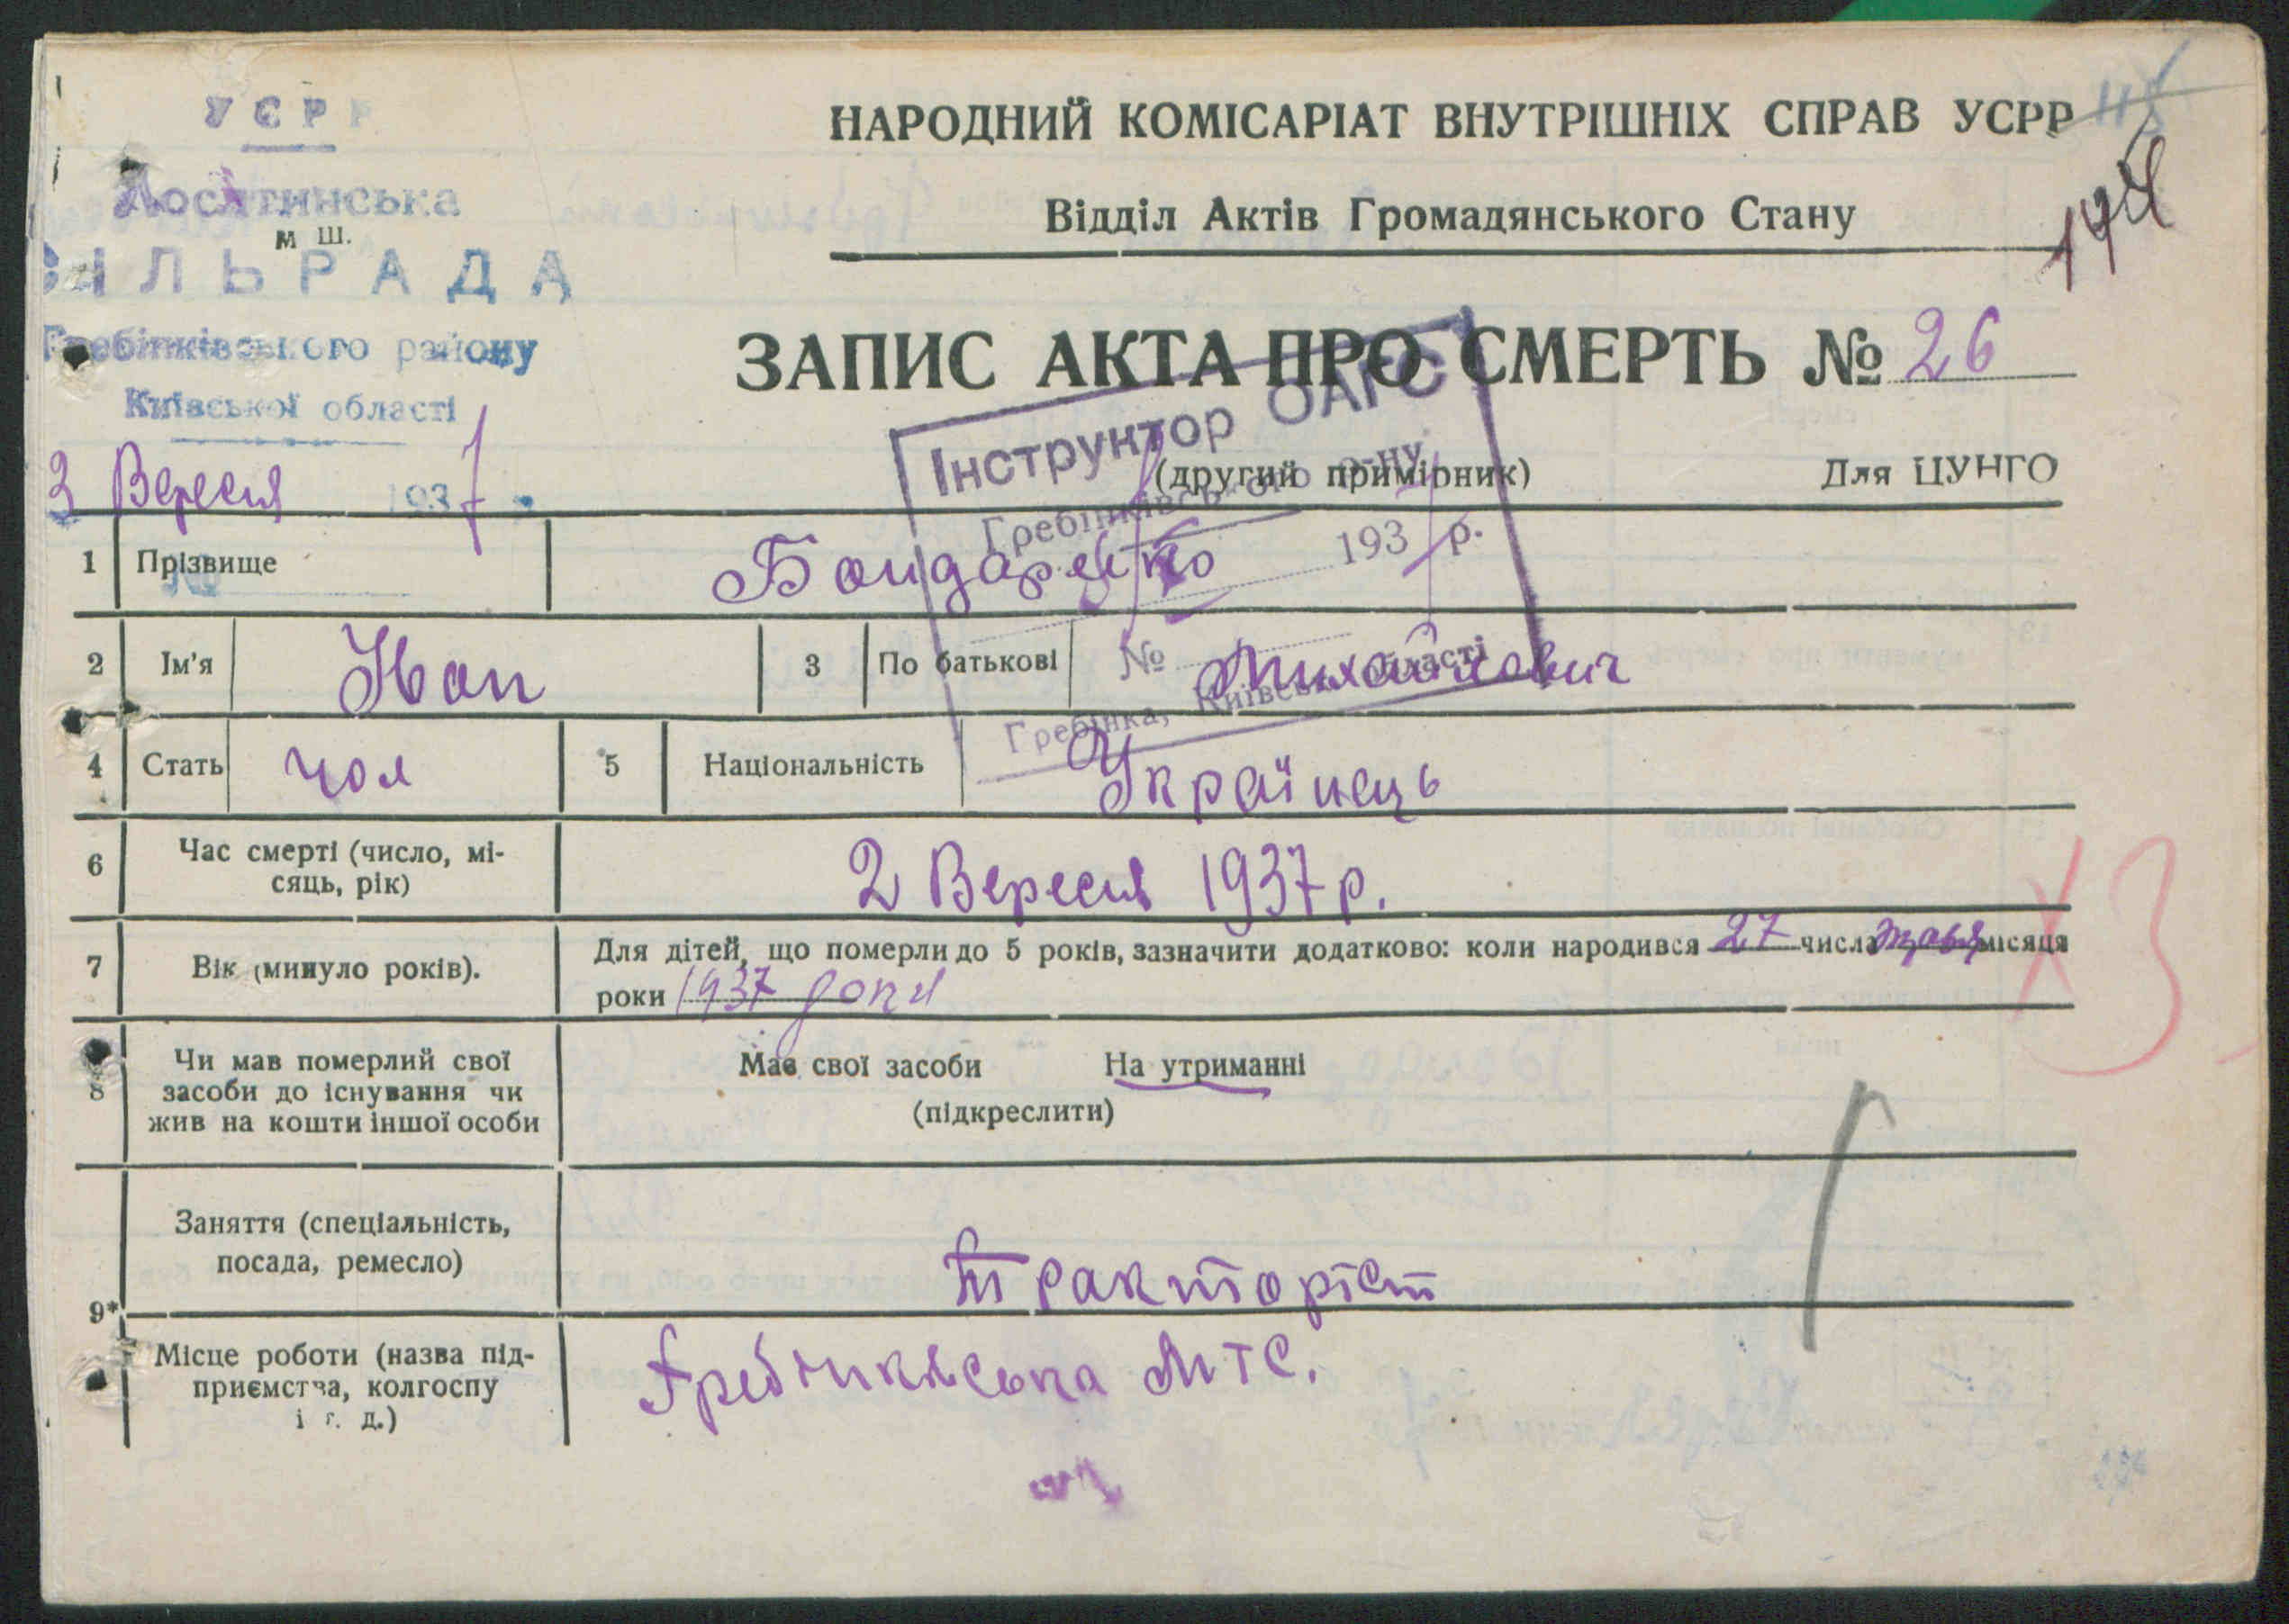 УСРР
Лосятинська
м ш.
СІЛЬРАДА
Гребінківського району
Київської області
3 Вересня 1937
№
НАРОДНИЙ КОМІСАРІАТ ВНУТРІШНІХ СПРАВ УСРР
Відділ Актів Громадянського Стану
ЗАПИС АКТА ПРО СМЕРТЬ № 26
(другий примірник) Для ЦУНГО
Інструктор ОАГС
Гребінківського р-ну
193 7 р.
№
Гребінка, Київської області
1 Прізвище Бондаренко
2 Ім'я Іван 3 По батькові Михайлович
4 Стать чол 5 Національність Українець
6 Час смерті (число, мі-
сяць, рік) 2 Вересня 1937 р.
7 Вік (минуло років). Для дітей, що померли до 5 років, зазначити додатково: коли народився 27 числа травня місяця
роки 1937 року
8 Чи мав померлий свої
засоби до існування чи
жив на кошти іншої особи
Має свої засоби На утриманні
(підкреслити)
Заняття (спеціальність,
посада, ремесло) Тракторіст
9*
Місце роботи (назва під-
приємства, колгоспу
і т. д.)
Гребінківська МТС.